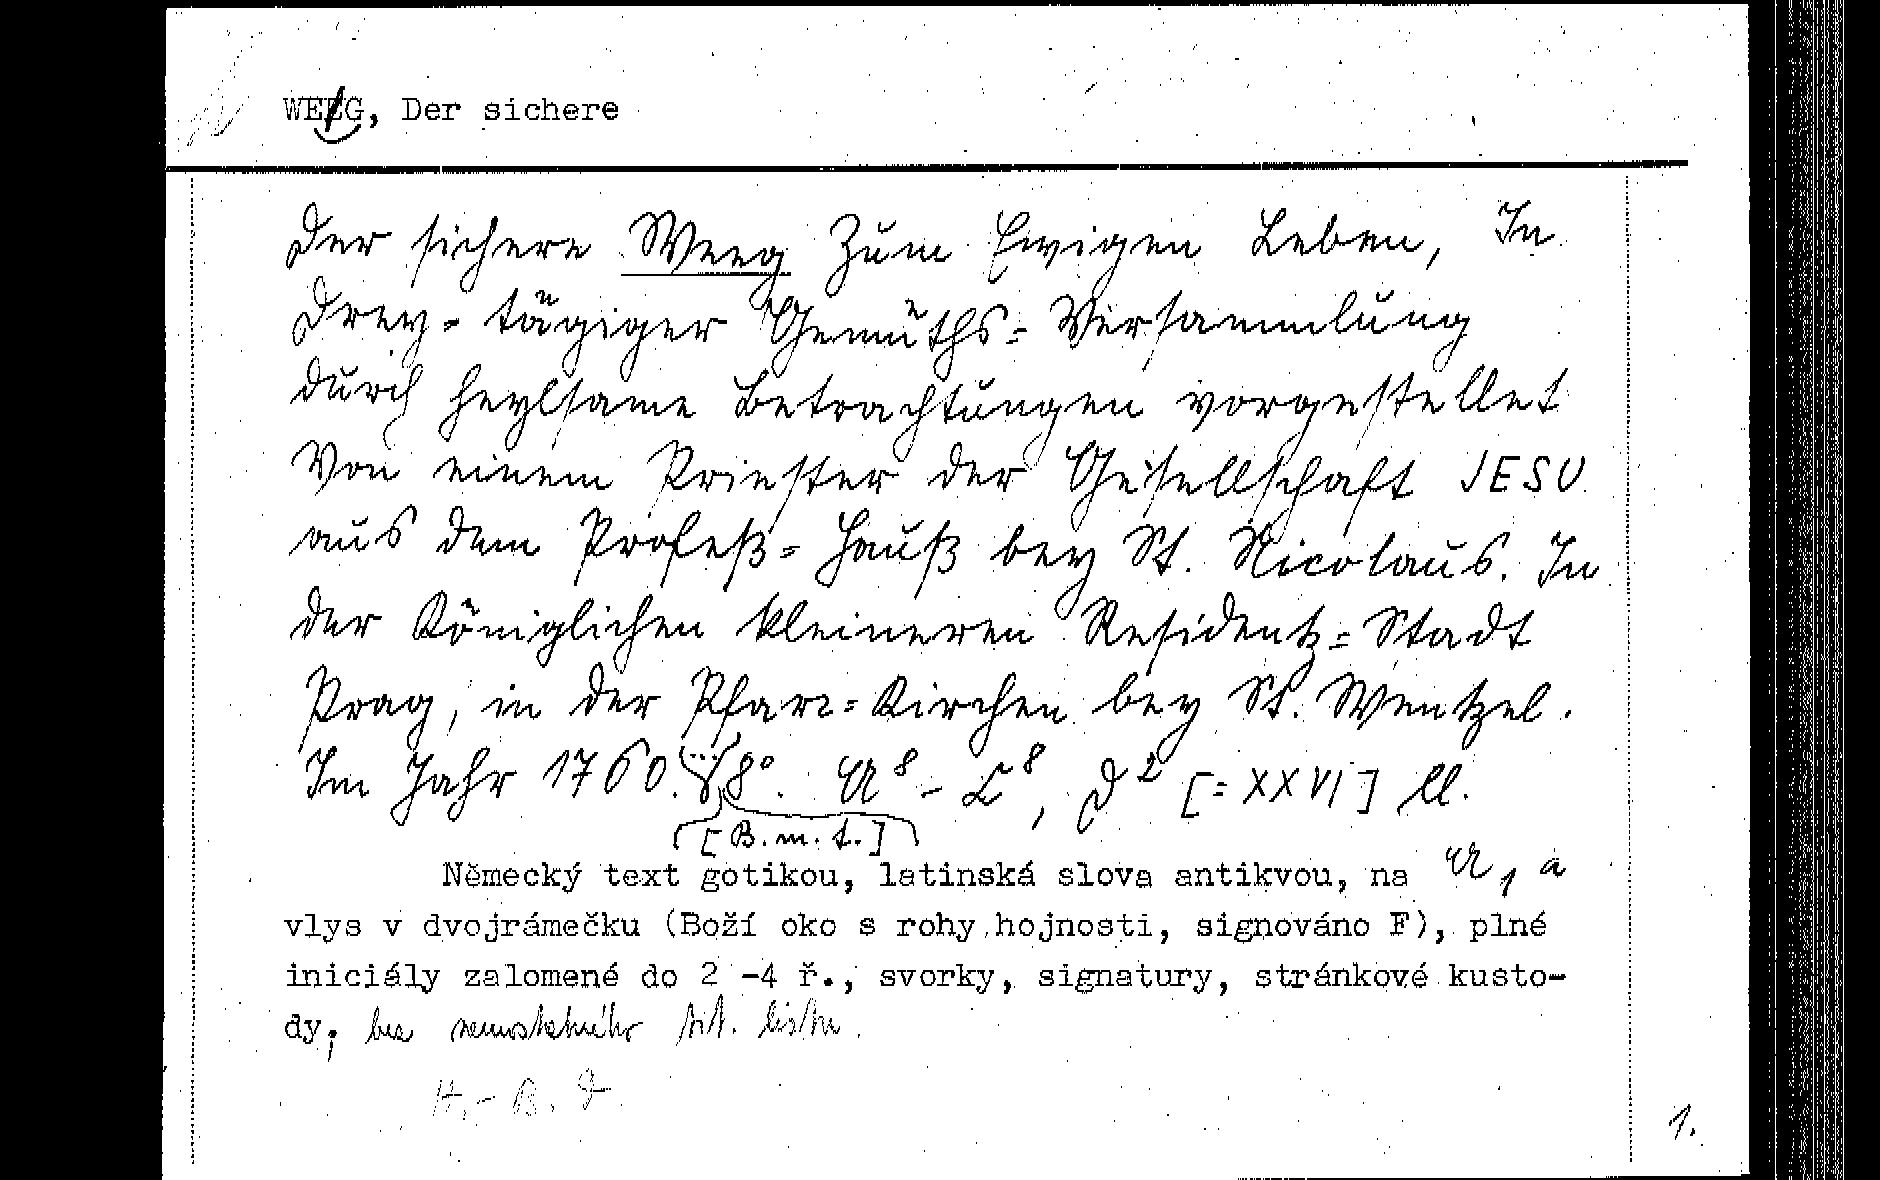 WEEG, Der sichere
Der sichere Weeg Zum Ewigen Leben, In
Drey= tägiger Gemüths= Versammlung
durch heylsame Betrachtungen vorgestellet
Von einem Priester der Gesellschaft JESU
aus dem Profeß= Hauß bey St. Nicolaus. In
der Königlichen kleineren Residentz= Stadt
Prag, in der Pfarr= Kirchen bey St. Wentzel.
Im Jahr 1760. 8°. A⁸ - C⁸, D² [= XXVI] ll.
[B.m.t.]
Německý text gotikou, latinská slova antikvou, na A₁ a
vlys v dvojrámečku (Boží oko s rohy hojnosti, signováno F), plné
iniciály zalomené do 2 -4 ř., svorky, signatury, stránkové kusto-
dy; bez samostatného tit. listu.
H.- B. D
1.